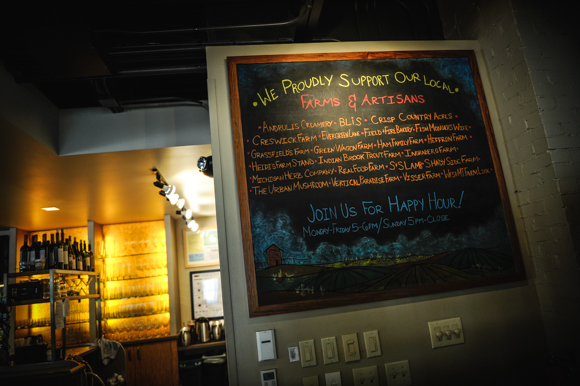 • We Proudly Support Our Local •
Farms & Artisans
• Andrulis Creamery • BLiS • Crisp Country Acres •
• Creswick Farm • Evergreen Lane • Field & Fire Bakery • Fish Monger's Wife •
• Grassfields Farm • Green Wagon Farm • Ham Family Farm • Heffron Farm •
• Heidi's Farm Stand • Indian Brook Trout Farm • Ingraberg Farm •
• Michigan Herb Company • Real Food Farm • S&S Lamb • Shady Side Farm •
• The Urban Mushroom • Vertical Paradise Farm • Visser Farm • West MI FarmLink •
Join Us For Happy Hour!
Monday-Friday 5-6pm/Sunday 5pm-Close